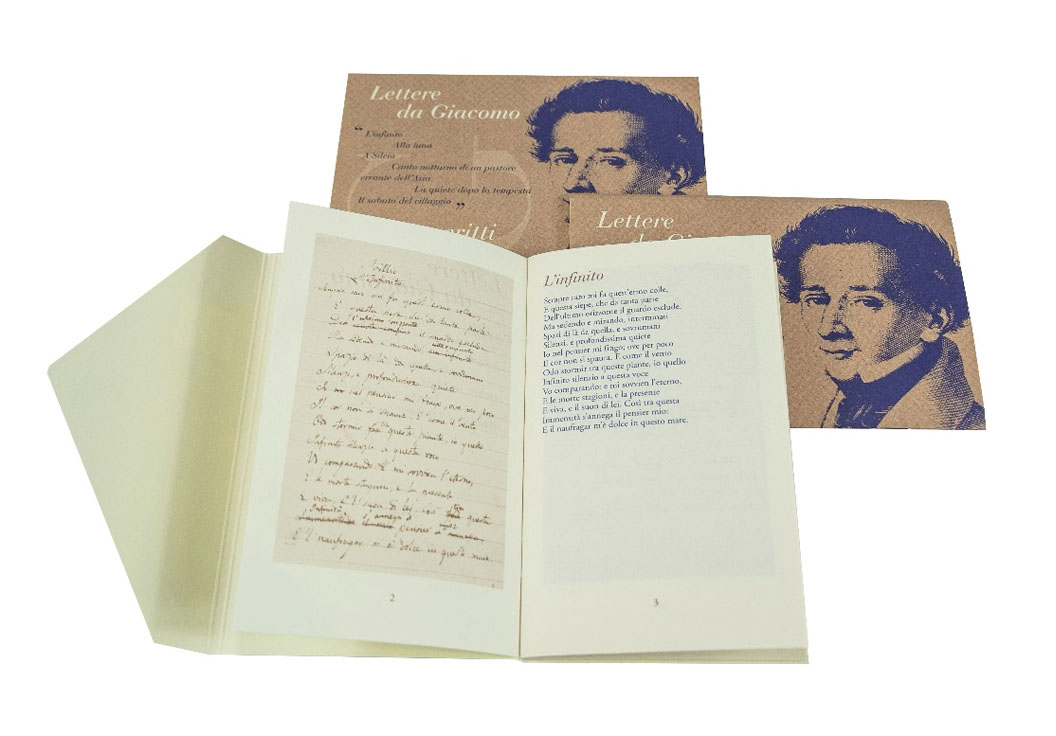 Lettere
da Giacomo
“ L'infinito
Alla luna
A Silvia
Canto notturno di un pastore
errante dell'Asia
La quiete dopo la tempesta
Il sabato del villaggio ”
Lettere
da
Idillio
L'Infinito
Sempre caro mi fu quest'ermo colle,
E questa siepe, che da tanta parte
il guardo esclude
Ma sedendo e mirando
Spazio di là da quella, e sovrumani
Silenzi, e profondissima quiete
Io nel pensier mi ove per poco
Il cor non si spaura. E come il vento
Odo stormir fra queste piante, io quello
Infinito silenzio a questa voce
Vo comparando. E mi sovvien l'eterno,
E le morte stagioni, e la presente
E viva, e 'l suon di lei. Così questa
Immensitade s'annega il pensier
E 'l naufragar m'è dolce in questo mare.
2
L'infinito
Sempre caro mi fu quest'ermo colle,
E questa siepe, che da tanta parte
Dell'ultimo orizzonte il guardo esclude.
Ma sedendo e mirando, interminati
Spazi di là da quella, e sovrumani
Silenzi, e profondissima quiete
Io nel pensier mi fingo; ove per poco
Il cor non si spaura. E come il vento
Odo stormir tra queste piante, io quello
Infinito silenzio a questa voce
Vo comparando: e mi sovvien l'eterno,
E le morte stagioni, e la presente
E viva, e il suon di lei. Così tra questa
Immensità s'annega il pensier mio:
E il naufragar m'è dolce in questo mare.
3